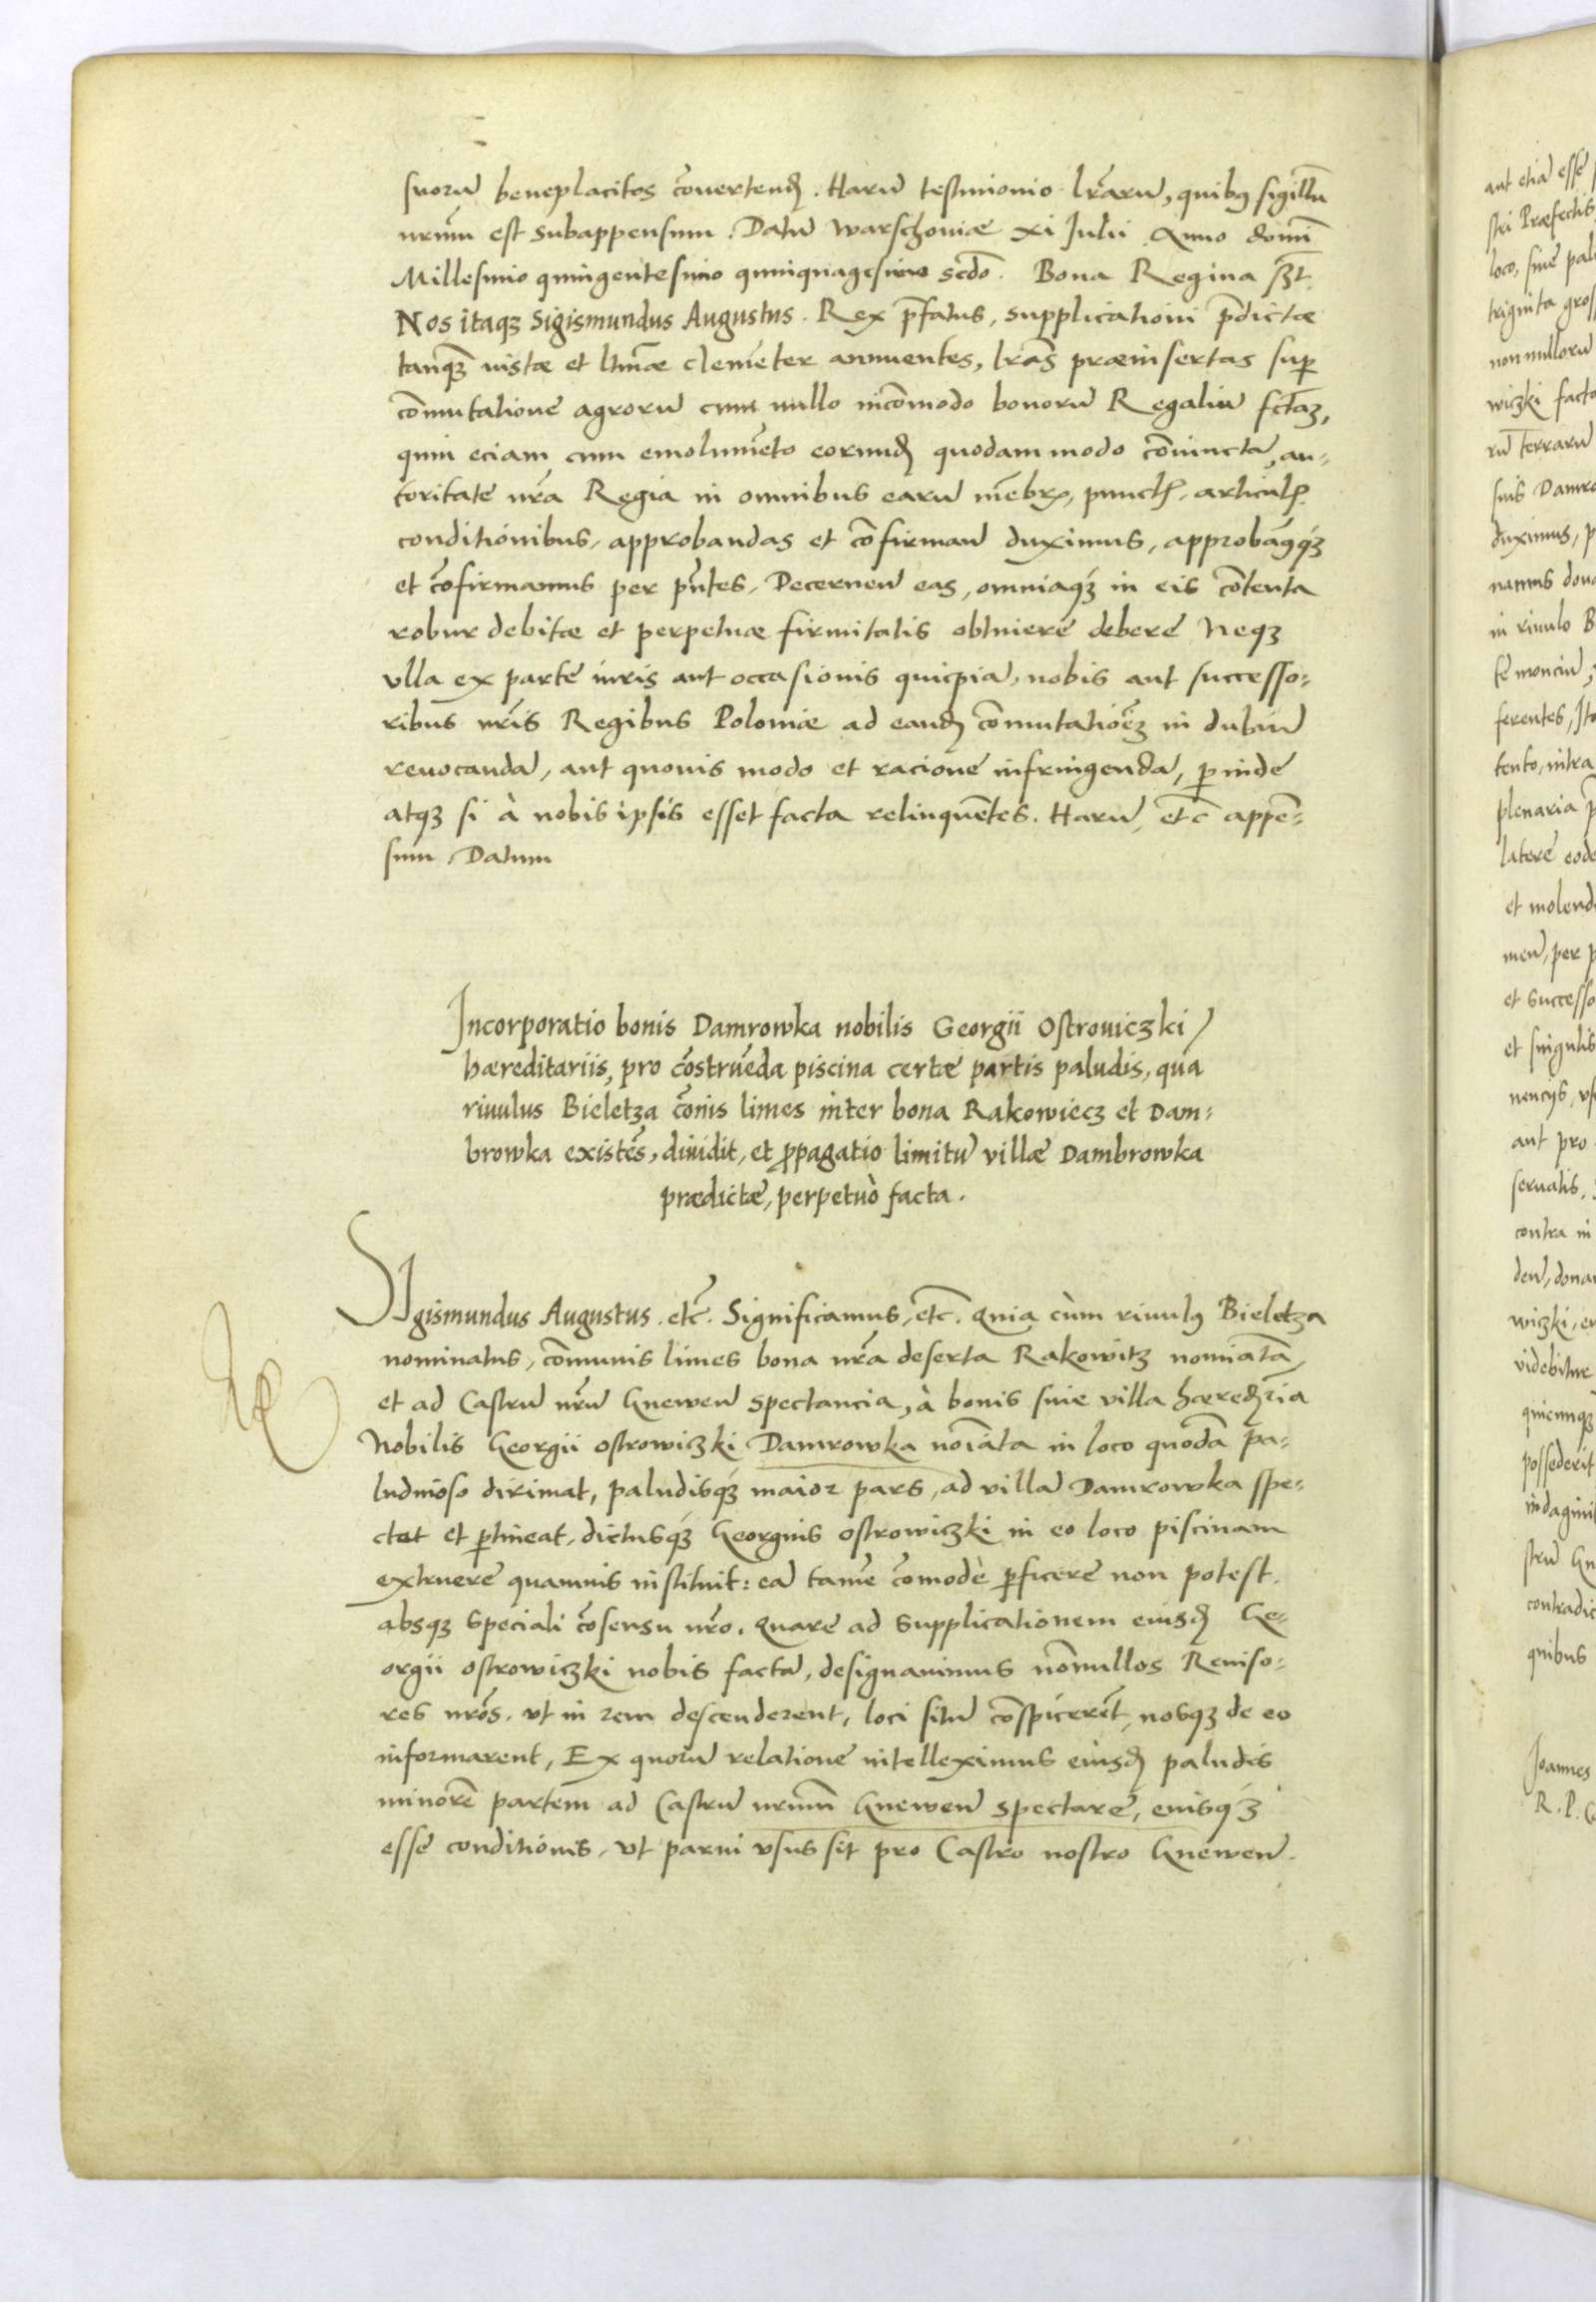 suorũ beneplacitos cõuertenđ. Harũ testimonio lr̃arũ, quibꝫ sigillũ
nr̃um est subappensum. Datũ Warschouiæ xi Julii Anno domĩ
Millesimo quingentesimo quinquagesimo scđo. Bona Regina sßt.
Nos itaqꝫ Sigismundus Augustus. Rex p̃fatus, supplicationi p̃dictæ
tanqꝫ iustæ et ltimæ clemẽter annuentes, lr̃as præinsertas sup̱
cõmutatione agrorũ cum nullo incõmodo bonorũ Regaliũ fctaꝫ,
quin eciam cum emolumẽto eorunđ quodam modo cõiuncta, au-
toritate nr̃a Regia in omnibus earũ mẽbr, punct, articul
conditionibus, approbandas et cõfirman̄ duximus, approbamꝰqꝫ
et cõfirmamus per pñtes, Decernen̄ eas, omniaqꝫ in eis cõtenta
robur debitæ et perpetuæ firmitatis obtinere debere Neqꝫ
vlla ex parte iuris aut occasionis quicpiã, nobis aut successo-
ribus nr̃is Regibus Poloniæ ad eanđ cõmutatioẽꝫ in dubiũ
reuocandã, aut quouis modo et racione infringendã, p̱inde
atqꝫ si à nobis ipsis esset facta relinquẽtes. Harũ, etc̃ appẽ-
sum. Datum
Incorporatio bonis Damrowka nobilis Georgii Ostrouiczki
hæreditariis, pro cõstruẽda piscina certæ partis paludis, qua
riuulus Bieletza cõnis limes inter bona Rakowiecz et Dam-
browka existẽs, diuidit, et p̱pagatio limitũ villæ Dambrowka
prædictæ, perpetuò facta.
Sigismundus Augustus. etc̃. Significamus, etc̃. Quia cùm riuulꝰ Bieletza
nominatus, cõmunis limes bona nr̃a deserta Rakowitz nomiatã,
et ad Castrũ nr̃ũ Gnewen̄ spectancia, à bonis siue villa hæređria
Nobilis Georgii Ostrowiczki Damrowka noĩata in loco quodã pa-
ludinoso dirimat, paludisqꝫ maior pars, ad villã Damrowka spe-
ctet et p̱tineat, dictusqꝫ Georgius Ostrowiczki in eo loco piscinam
extruere quamuis instituit: eã tamẽ cõmodè p̱ficere non potest
absqꝫ speciali cõsensu nr̃o. Quare ad supplicationem eiusđ Ge-
orgii Ostrowiczki nobis factã, designauimus nõnullos Reuiso-
res nr̃os. vt in rem descenderent, loci sitũ cõspicerẽt, nosqꝫ de eo
informarent, Ex quorũ relatione intelleximus eiusđ paludis
minorẽ partem ad Castrũ nr̃um Gnewen̄ spectare, eiusqꝫ
esse conditionis, vt parui vsus sit pro Castro nostro Gnewen̄.
aut etiã esse
stri Præfectis
loco, siue
triginta
non nullorũ
wiczki
rũ terrarũ
suis
duximus,
namus
in riuulo
ferentes,
tento, intra
plenaria
latere
et
men̄, per
et
et singulis
aut pro
seruatis,
contra in
wiczki,
videbitur
possederit
quibus
Joannes
R. P.